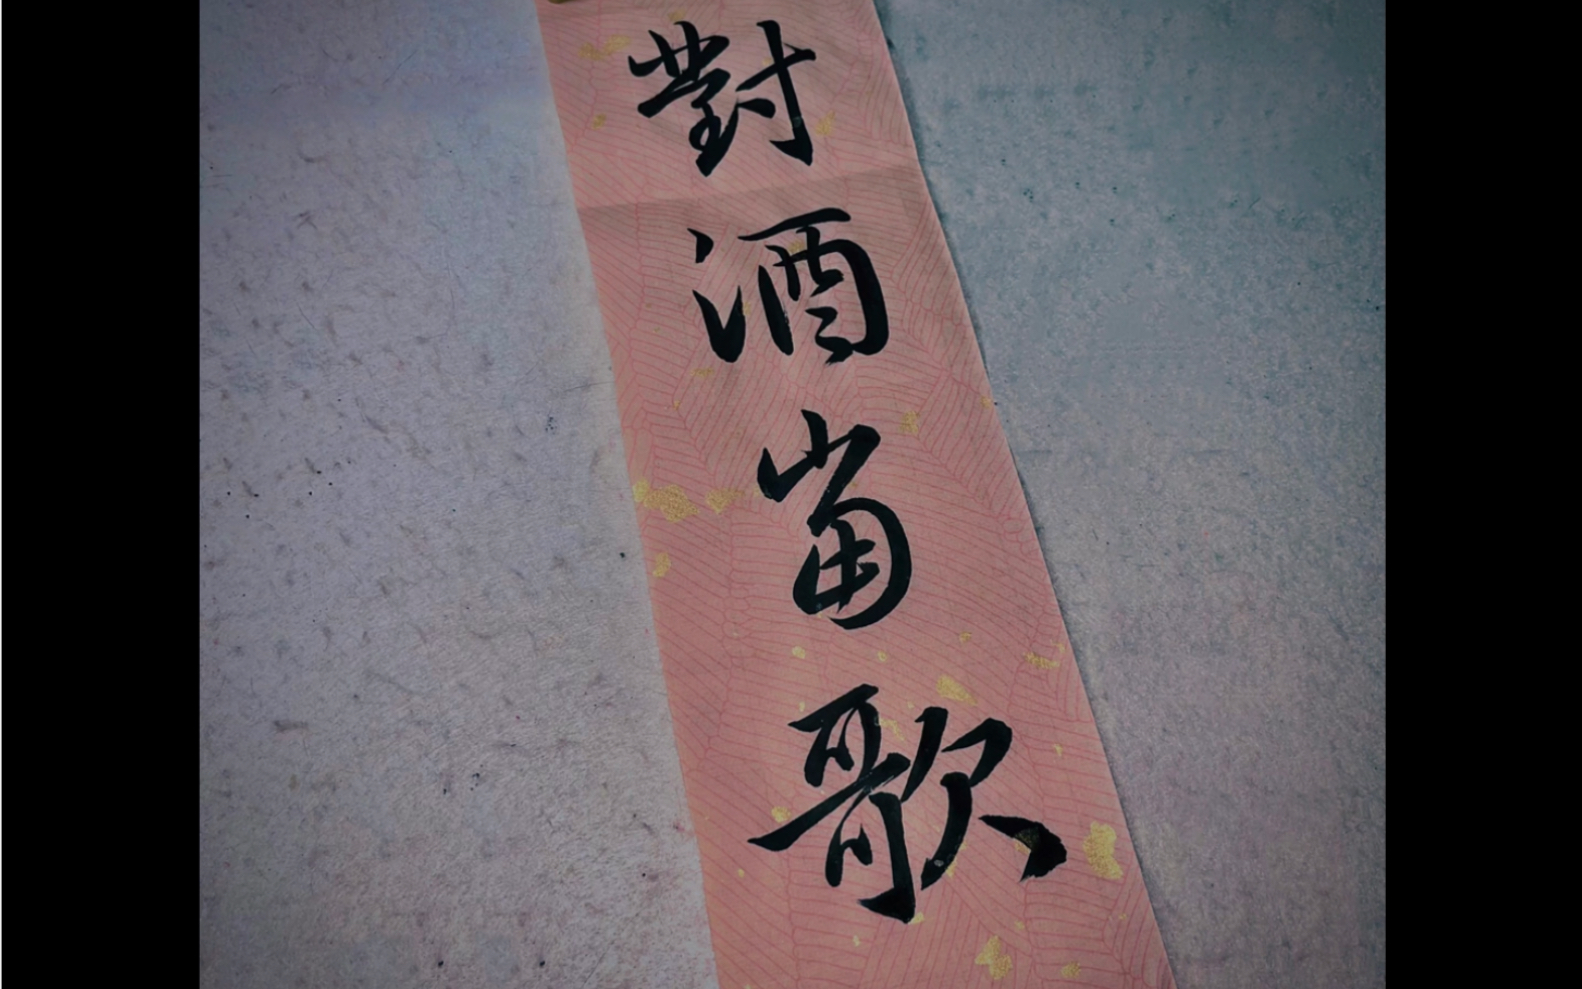 對酒當歌